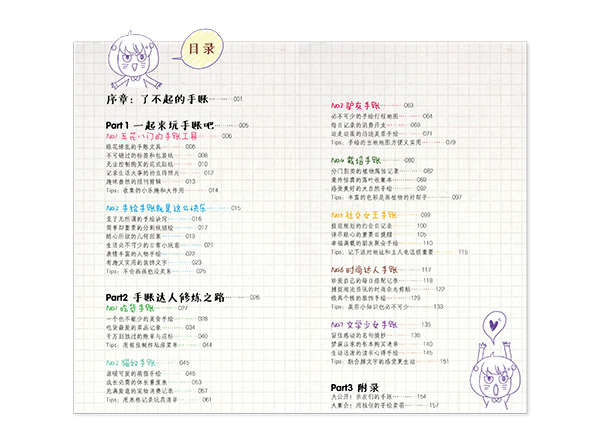 目录
序章：了不起的手账 001
Part1 一起来玩手账吧 005
No1 五花八门的手账工具 006
眼花缭乱的手账文具 007
不可错过的标签和包装纸 008
无法控制购买的花式贴纸 010
记录生活大事的拍立得照片 012
趣味自然的报刊剪辑 013
Tips：收集的小乐趣和大作用 014
No2 手绘手账就是这么快乐 015
变了无所谓的手绘诀窍 016
简单却重要的分割线描绘 017
随心所欲的几何图案 019
生活必不可少的日常小玩意 021
表情丰富的人物手绘 022
有趣又实用的装饰文字 023
Tips：不会画画也没关系 025
Part2 手账达人修炼之路 026
No1 吃货手账 027
一个也不能少的美食手绘 028
吃货最爱的菜品记录 034
千万别放过的账单与还积 040
Tips：用报纸制作私房菜单 044
No2 猫奴手账 045
温暖可爱的萌猫手绘 046
成长必需的体长量度表 053
充满爱意的宠物消费记录 057
Tips：用表格记录玩具清单 061
No3 驴友手账 063
必不可少的手绘行程地图 064
每日记录的消费月支 069
边走边画的沿途美景手绘 071
Tips：手绘的当地地图方便又实用 079
No4 栽培手账 080
分门别类的植物属性记录 082
意外惊喜的落叶收集本 089
感受美好的大自然手绘 092
Tips：丰富的色彩是画植物的好帮手 097
No5 社交女王手账 099
提前规划的约会日记录 100
详尽贴心的重要日提醒 105
幸福满载的朋友聚会手绘 110
Tips：记下派对地址和主人电话很重要 115
No6 时尚达人手账 117
给爱自己的每日搭配记录 118
捕捉潮流资讯的时尚杂志剪贴 122
极具个性的服饰手绘 129
Tips：美容小知识也必不可少 133
No7 文学少女手账 135
留住感动的名句摘抄 136
梦寐以求的书本购买清单 140
生动活泼的读书心得手绘 145
Tips：融合颜文字的感觉更生活 151
Part3 附录
大公开！亲友们的手账 154
大集合！用独创的手绘卖萌 157